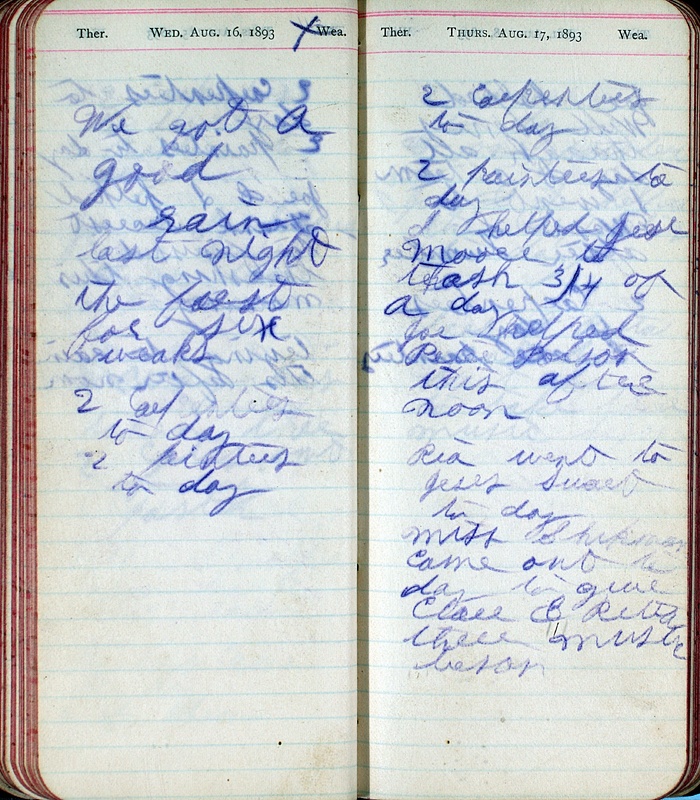 Ther. WED. AUG. 16, 1893 X Wea.
We got a
good
rain
last night
the first
for six
weaks
2 carpenters
to day
2 pinters
to day
Ther. THURS. AUG. 17, 1893 Wea.
2 carpenters
to day
2 painters to
day
I helped Jese
Moore to
thash 3/4 of
a day
Joe helped
this after
noon
Ria went to
to day
miss
came out to
day to give
Clare & Reta
there music
leson